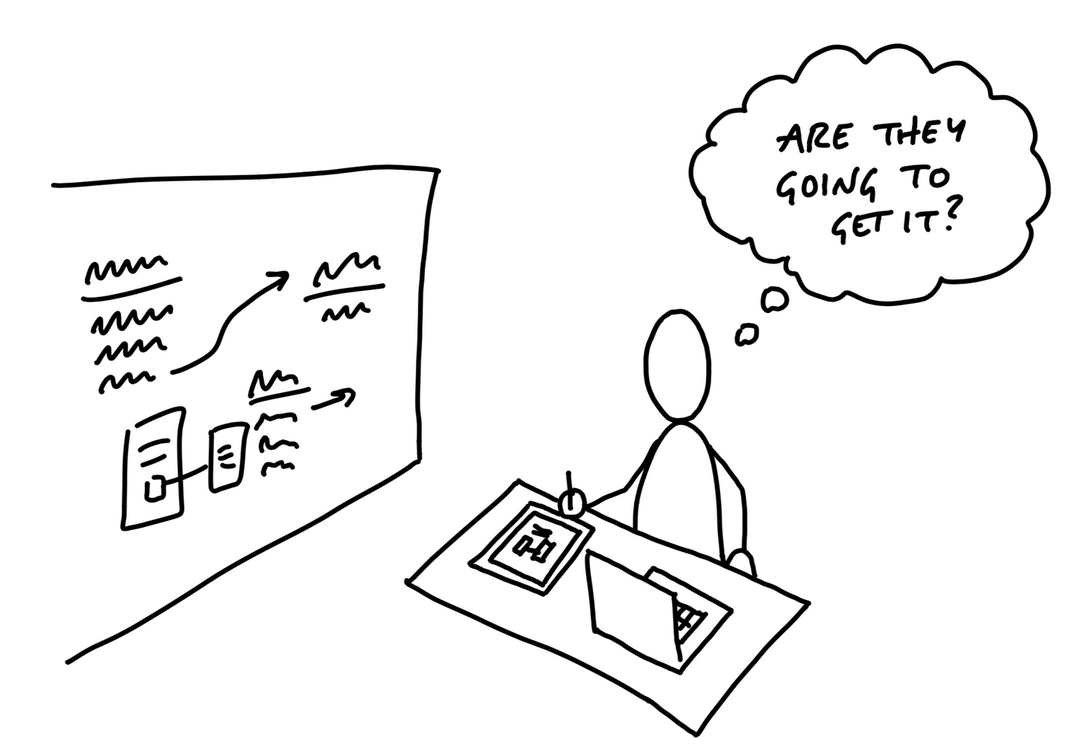 ARE THEY
GOING TO
GET IT?